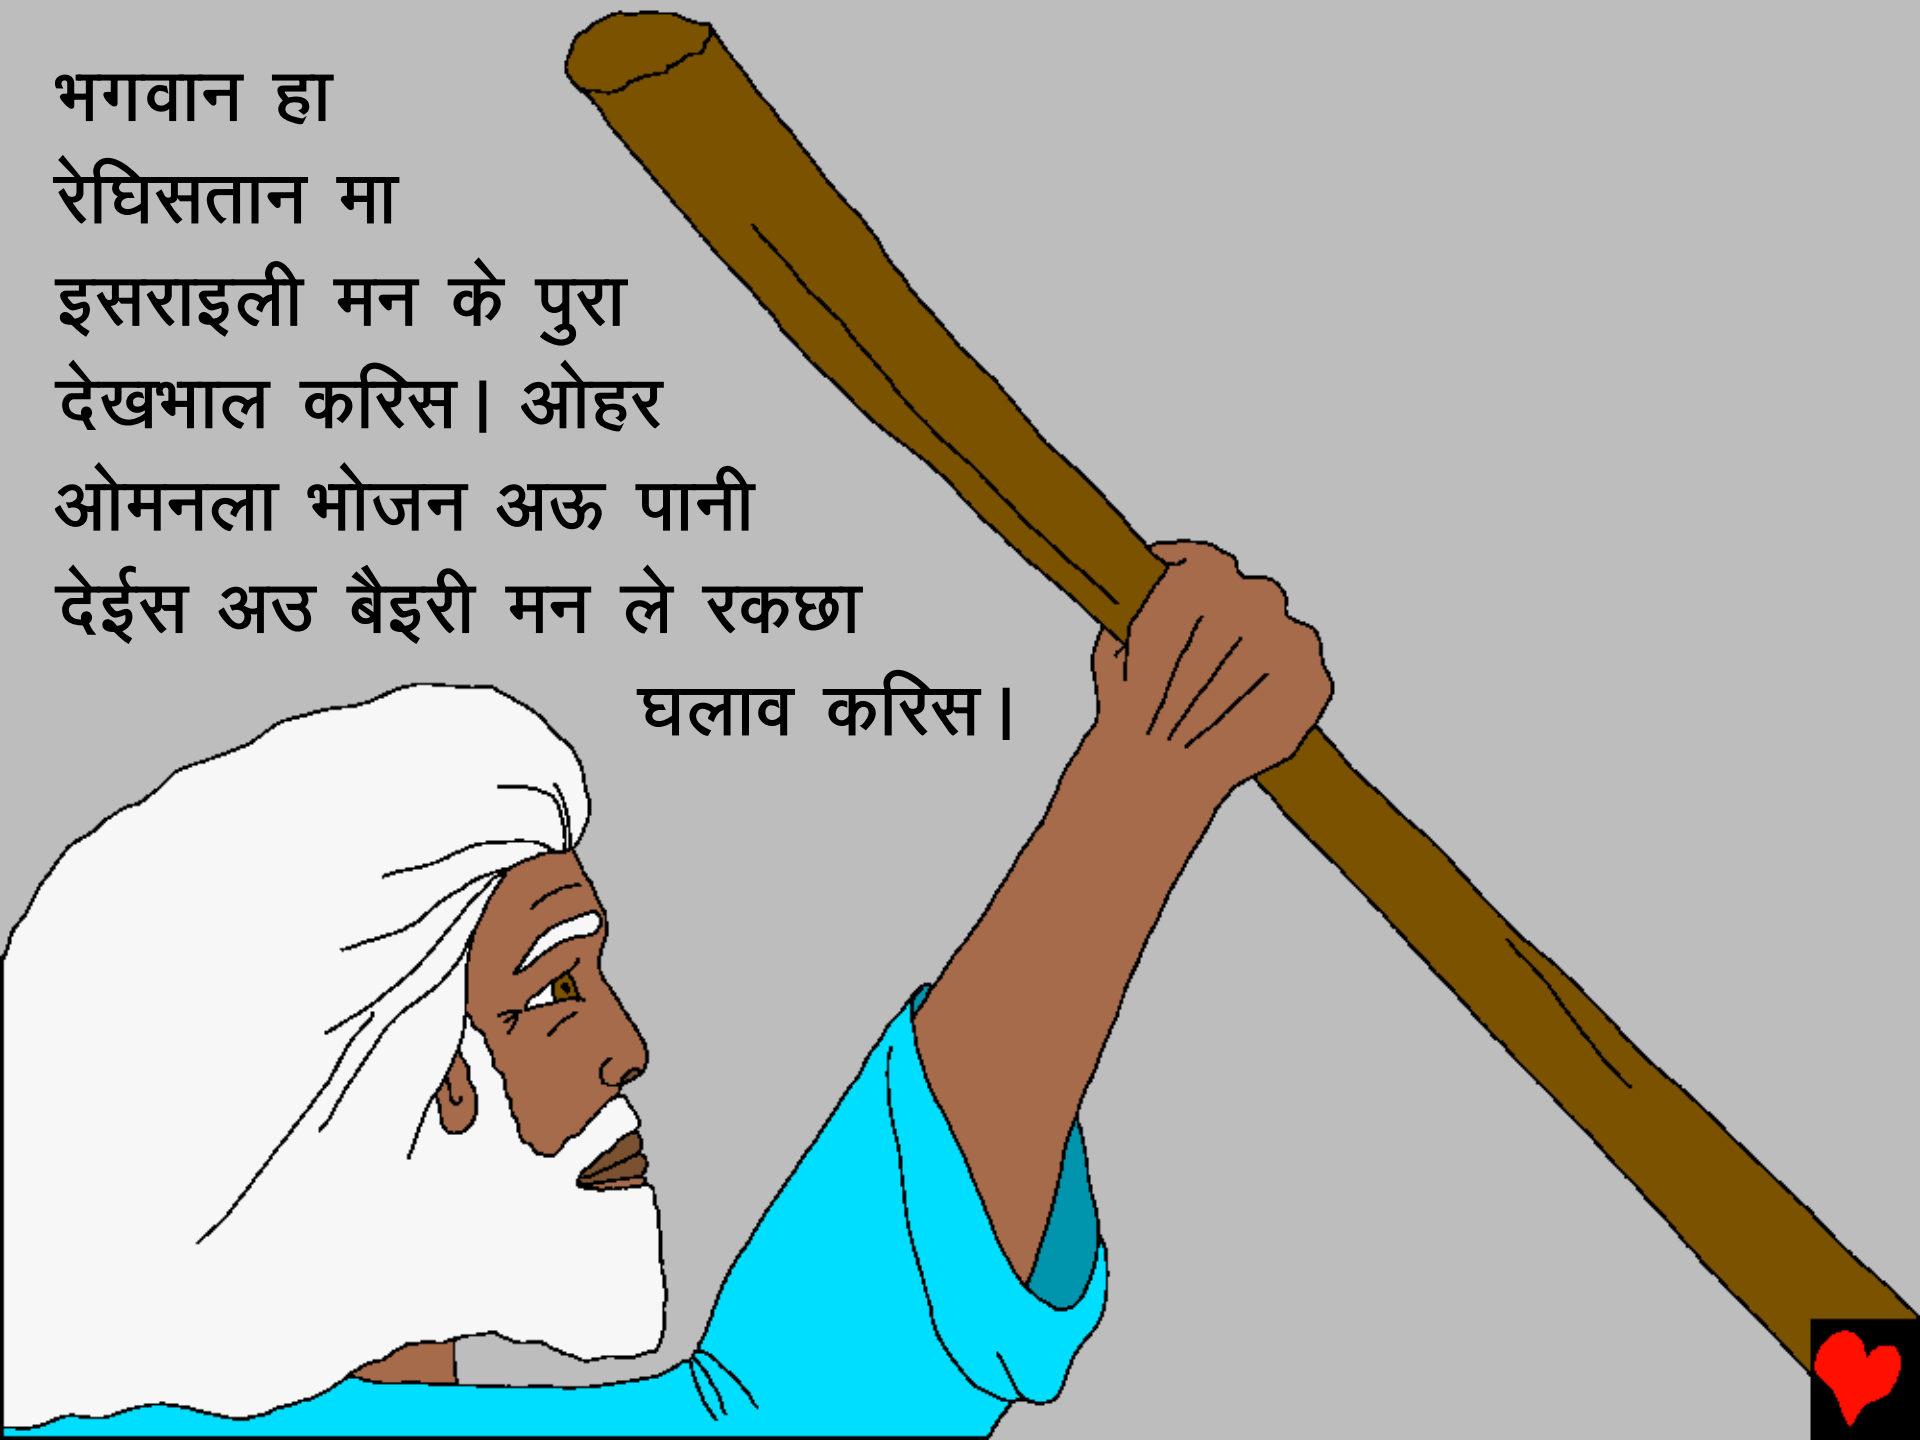 भगवान हा
रेघिसतान मा
इसराइली मन के पुरा
देखभाल करिस। ओहर
ओमनला भोजन अऊ पानी
देईस अउ बैइरी मन ले रकछा
घलाव करिस।